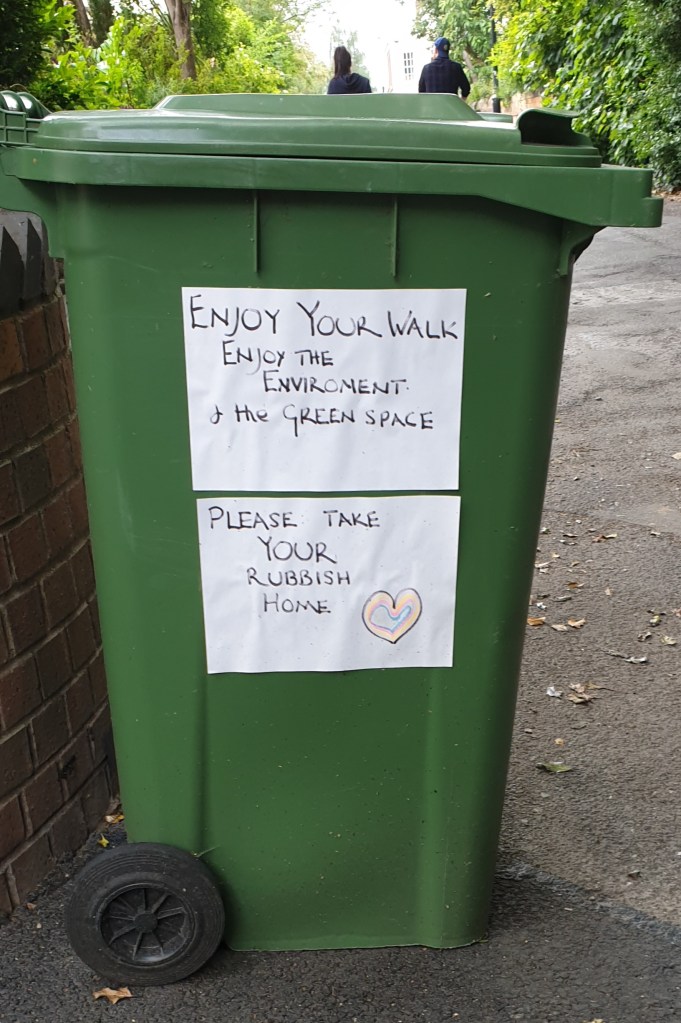 ENJOY YOUR WALK
ENJOY THE
ENVIROMENT.
& the GREEN SPACE
PLEASE TAKE
YOUR
RUBBISH
HOME